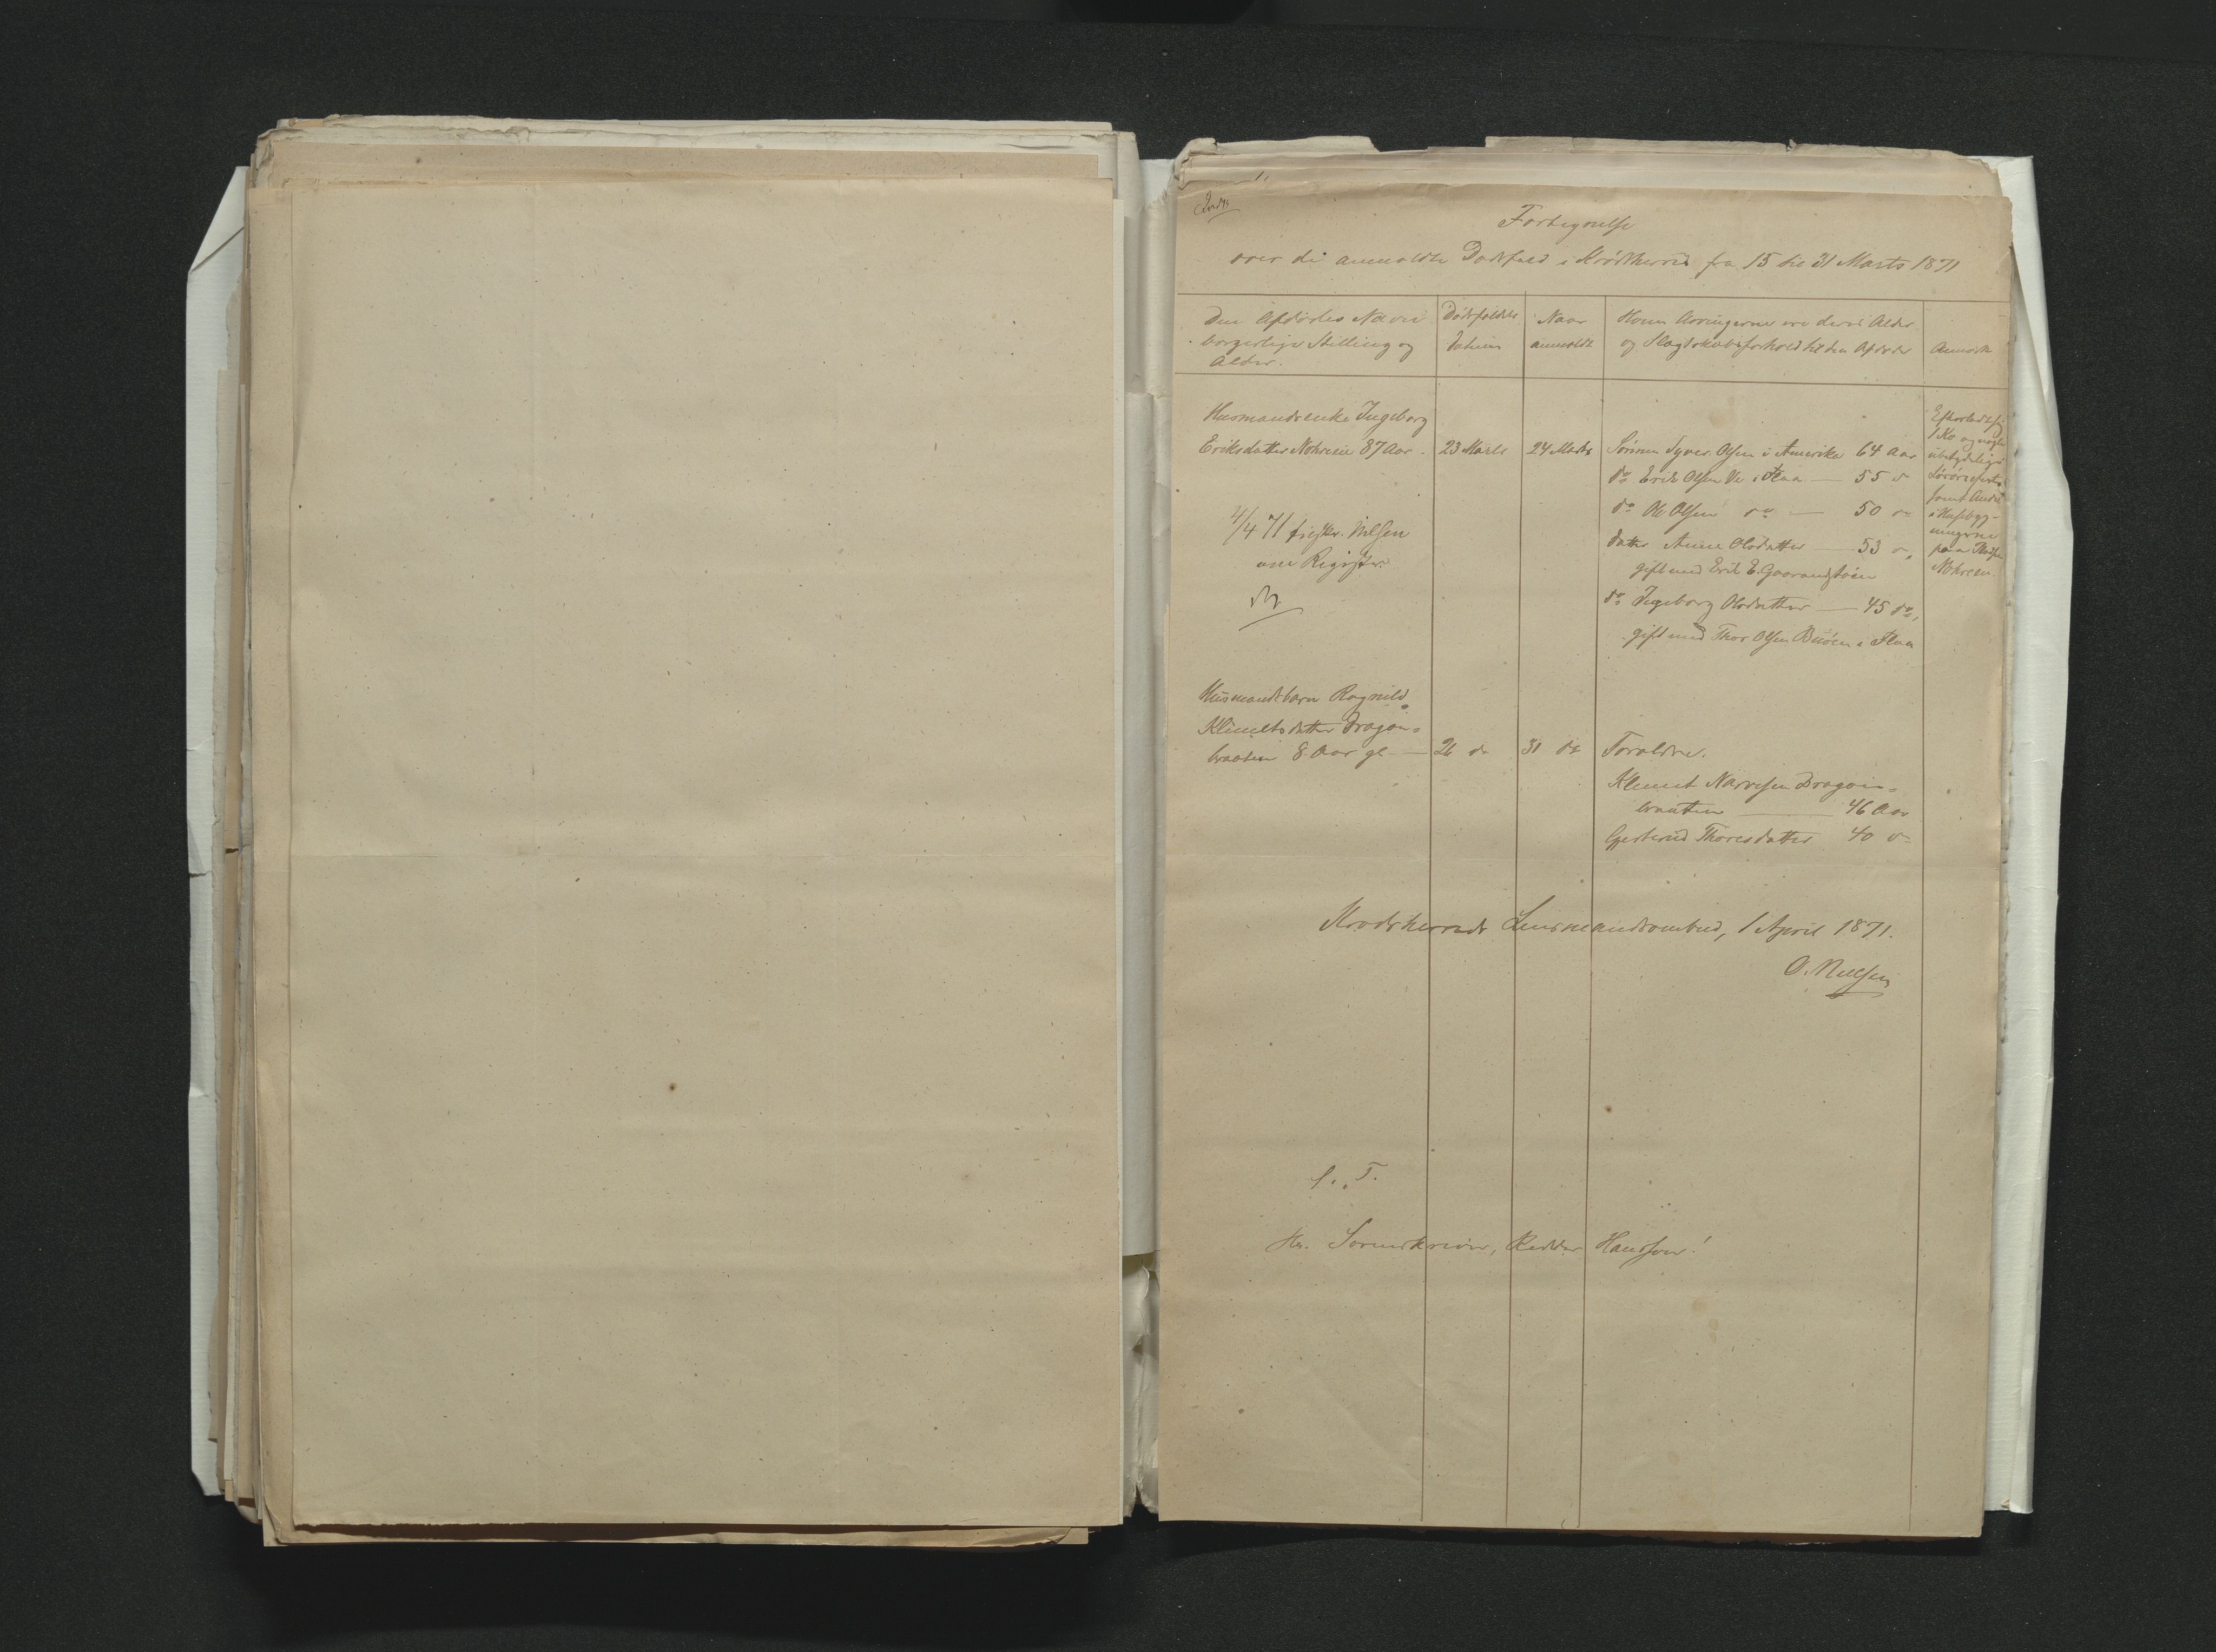 Fortegnelse
over de anmeldte Dødsfald i Krødsherred fra 15 til 31 Marts 1871
Den Afdødes Navn
borgerlige Stilling og
Alder.
Dødsfaldets
Datum
Naar
anmeldt
Hvem Arvingerne ere deres Alder
og Slægtskabsforhold til den Afdøde
Anmærk
Husmandsenke Ingeborg
Eriksdatter Nohreie 87 Aar.
23 Marts
24 Marts
Sønnen Syver Olsen i Amerika 64 Aar
do Erik Olsen i Flaa — 55 d
do Ole Olsen do — 50 do
Datter Anne Olsdatter — 53 d,
gift med Erik E.
do Ingeborg Olsdatter — 45 do,
gift med Thor Olsen i Flaa
1 Ko og nogle
ubetydelige
samt Andel
i Husebyg-
ningerne
paa
4/4 71 Nilsen
om Registr.
Husmandsbarn Ragnild
Klemetsdatter Dragon-
braaten 8 Aar gl —
26 do
31 do
Forældre.
Klemet Narvesen Dragon-
braaten — 46 Aar
Gjertrud Thoresdatter 40 d
Krødsherreds Lensmandsombud, 1 April 1871.
O. Nielsen
S. T.
Hr. Sorenskriver, Ridder Hansson!